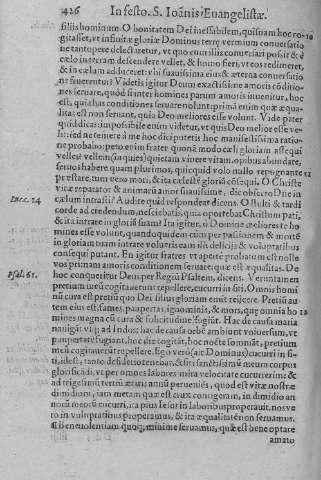 426 In festo. S. Ioānis Euangelistæ.
filiis hominum. O bonitatem Dei ineffabilem, quisnam hoc co- 10
gitasset, vt in suæ gloriæ Dominus terræ vermium conuersatio
ne tantopere delectaretur, vt quo cum illis conuersari posset &
cælo in terram descendere vellet, & homo fieri, vt eos redimeret,
& in cælum adduceret: vbi suauissima eius & æterna conuersatio
ne fruerentur? Videtis igitur Deum exactissime amoris cōditio-
nes seruare, quòd si inter homines parum amoris inuenitur, hoc
est, quia has conditiones seruare nolunt: primā enim quæ æqua-
litas est non seruant, quia Deo meliores esse volunt. Vide pater
quid dicas: impossibile enim videtur, vt quis Deo melior esse ve-
lit: sed ne temerè à me hoc dici putetis hoc manifestissima ratio-
ne probabo: peto enim frater quonā modo cæli gloriam assequi
velles? vellem (inquies) quietam viuere vitam, opibus abundare,
seruos habere quam plurimos, quicquid volo nullo repugnante 11
præstare, tum verò mori, & ita cælestē gloriā cōsequi. O Christe
vitæ reparator & animarū amor suauissime, dic obsecro Due in
Lucc. 24 cælum intrasti? Audite quid respondeat dicens. O stulti & tardi
corde ad credendum, nesciebatis, quia oportebat Christum pati,
& ita intrare in gloriā suam? Ita igitur, ò Domine cæliores te ho
mines esse volunt, quandoquidem cùm per passionem & mortē
in gloriam tuam intrare volueris eam illi deliciis & voluptatibus
consequi putant. En igitur fratres vt apertè probatum est nollo
vos primam amoris conditionem seruare: quæ est æqualitas. De
Psal. 61. hoc conqueritur Deus per Regiū Psaltem, dicens. Veruntamen
pretium meū cogitauerunt repellere, cucurri in siti. Omnis homi
nū cura est pretiū quo Dei filius gloriam emit reijcere. Pretiū au
tem eius est fames, paupertas, ignominiæ, & mors, quæ omnia ho 12
mines magna cū cura & solicitudine fugiūt. Hac de causa maria
nauigāt vsq; ad Indos: hac de causa orbē ambiunt vniuersum, vt
paupertatē fugiant, hoc die cogitāt, hoc nocte somniāt, pretium
meū cogitauerūt repellere. Ego verò (ait Dominus) cucurri in si-
ti, id est, tanto desiderio tenebar, & siti sanctissimū meum corpus
glorificādi, vt per omnes labores mira velocitate cucurrerim: &
ad trigesimū tertiū ætatis annū peruenies, quod est vitæ nostræ
dimidium, iam metam quæ est crux conuigeram, in dimidio an
norū meorū cucurri, ita pius Iesus in laboribus properauit, nos ve
rò in voluptatibus properamus, & ita æqualitatē non seruamus.
Beneuolentiam quoq; minime seruamus, quæ est bene optare
amato